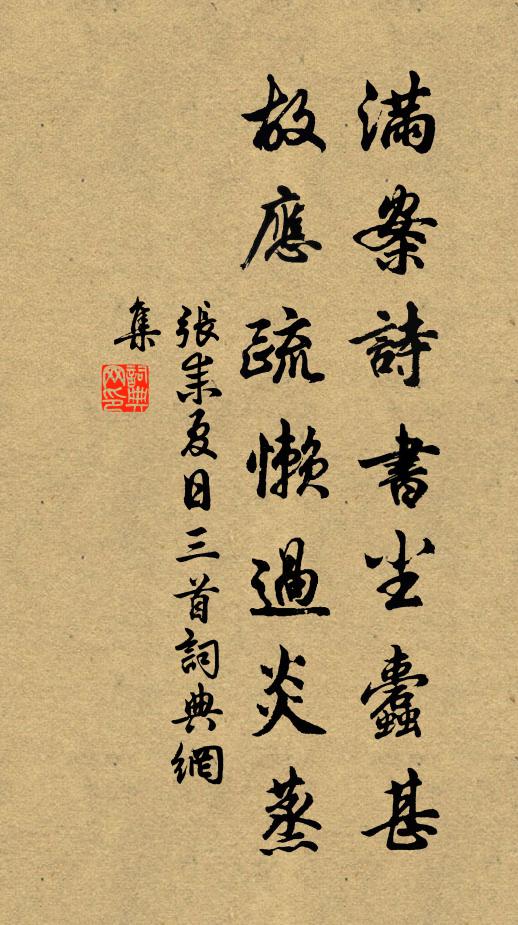 滿案詩書尘蠹甚
故應疏懶過炎蒸
張耒夏日三首詞典網
集
詞典网印